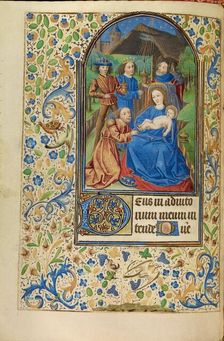 Deus in adiuto
rium meum in
tende Dñe